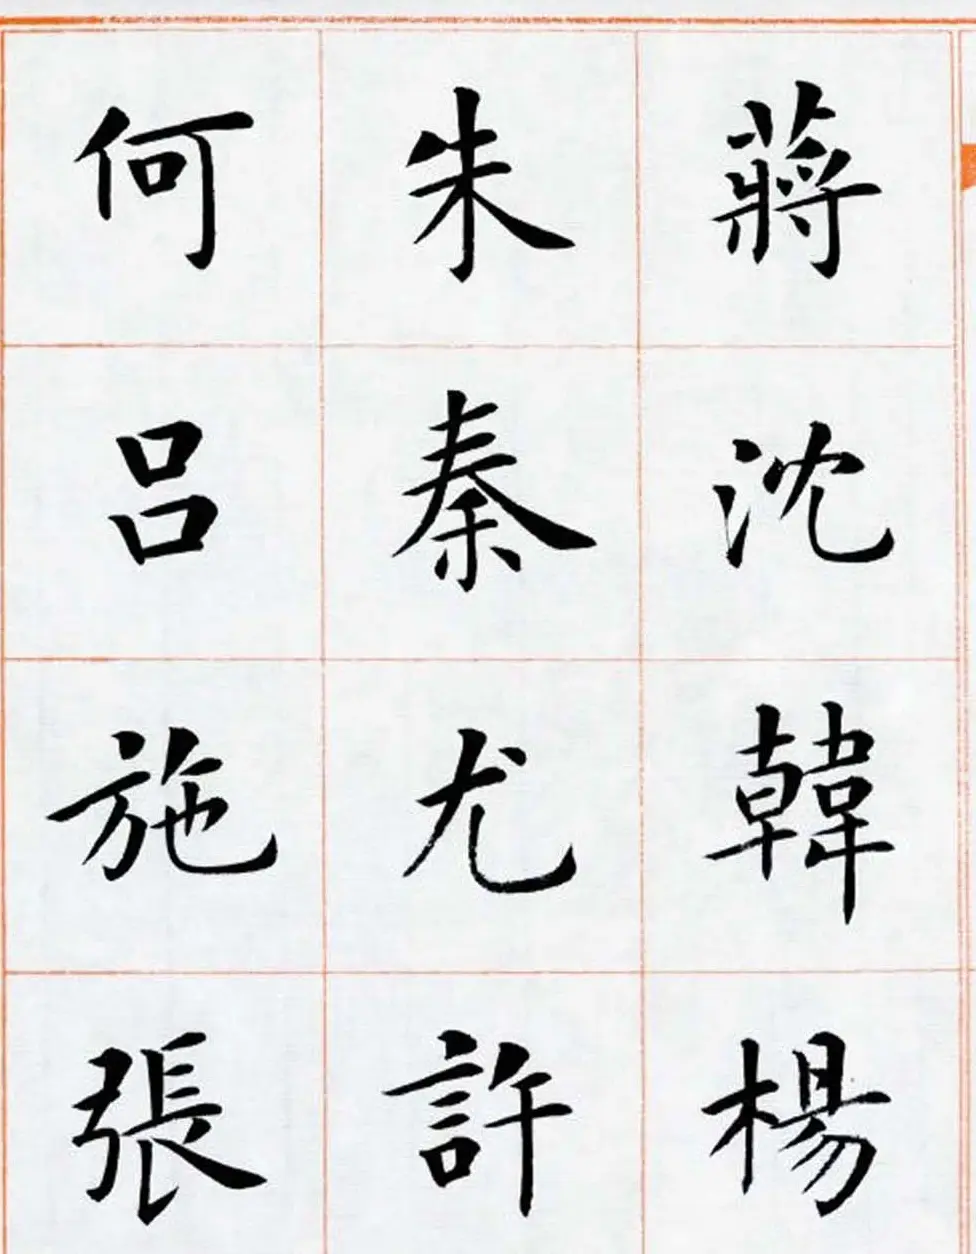 蔣沈韓楊
朱秦尤許
何呂施張